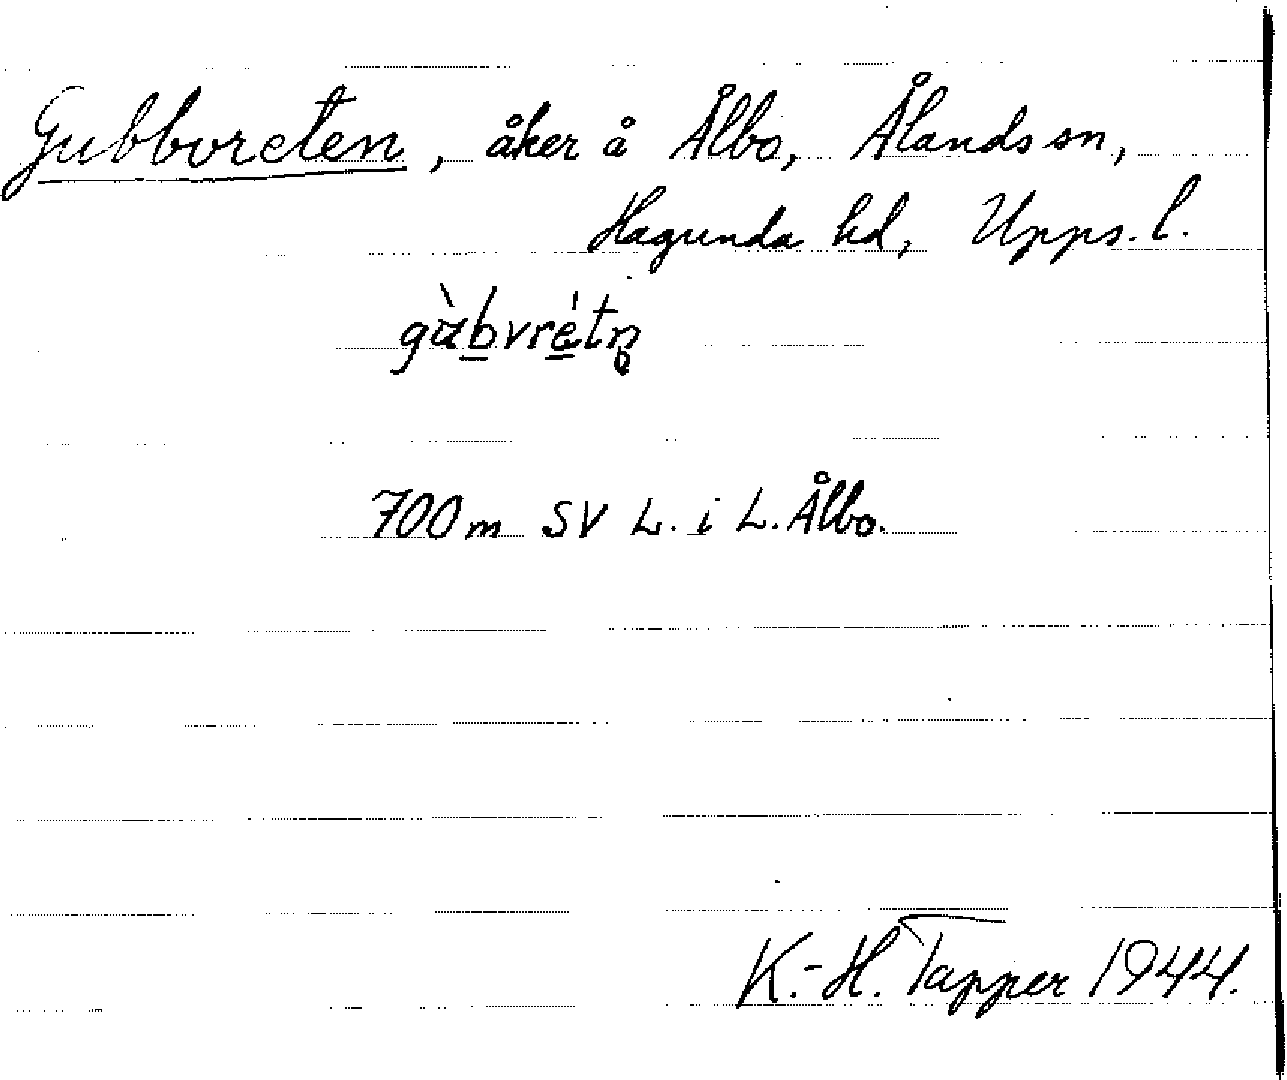 Gubbvreten, åker å Ålbo, Ålands sn,
Hagunda hd, Upps. l.
gu̇̀b̲vré̲tn̥
700 m SV L. i L. Ålbo.
K.-H. Tapper 1944.